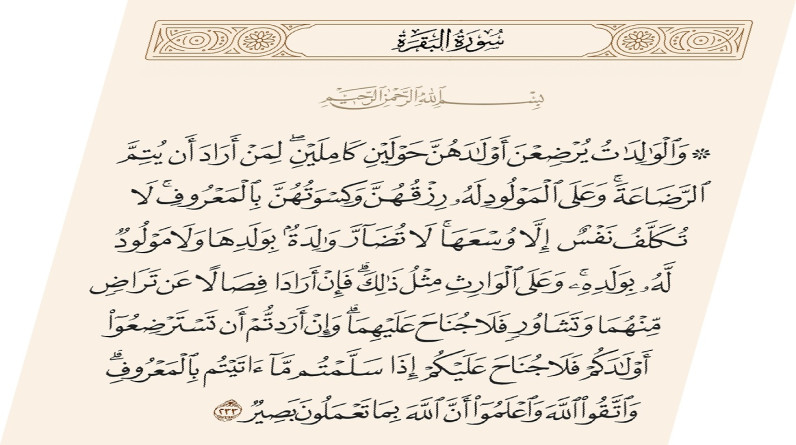 سُورَةُ البَقَرَةِ
بِسْمِ اللَّهِ الرَّحْمَٰنِ الرَّحِيمِ
۞ وَٱلْوَٰلِدَٰتُ يُرْضِعْنَ أَوْلَٰدَهُنَّ حَوْلَيْنِ كَامِلَيْنِۖ لِمَنْ أَرَادَ أَن يُتِمَّ
ٱلرَّضَاعَةَۚ وَعَلَى ٱلْمَوْلُودِ لَهُۥ رِزْقُهُنَّ وَكِسْوَتُهُنَّ بِٱلْمَعْرُوفِۚ لَا
تُكَلَّفُ نَفْسٌ إِلَّا وُسْعَهَاۚ لَا تُضَآرَّ وَٰلِدَةُۢ بِوَلَدِهَا وَلَا مَوْلُودٌ
لَّهُۥ بِوَلَدِهِۦۚ وَعَلَى ٱلْوَارِثِ مِثْلُ ذَٰلِكَۗ فَإِنْ أَرَادَا فِصَالًا عَن تَرَاضٍ
مِّنْهُمَا وَتَشَاوُرٍ فَلَا جُنَاحَ عَلَيْهِمَاۗ وَإِنْ أَرَدتُّمْ أَن تَسْتَرْضِعُوٓا۟
أَوْلَٰدَكُمْ فَلَا جُنَاحَ عَلَيْكُمْ إِذَا سَلَّمْتُم مَّآ ءَاتَيْتُم بِٱلْمَعْرُوفِۗ
وَٱتَّقُوا۟ ٱللَّهَ وَٱعْلَمُوٓا۟ أَنَّ ٱللَّهَ بِمَا تَعْمَلُونَ بَصِيرٌ ٢٣٣